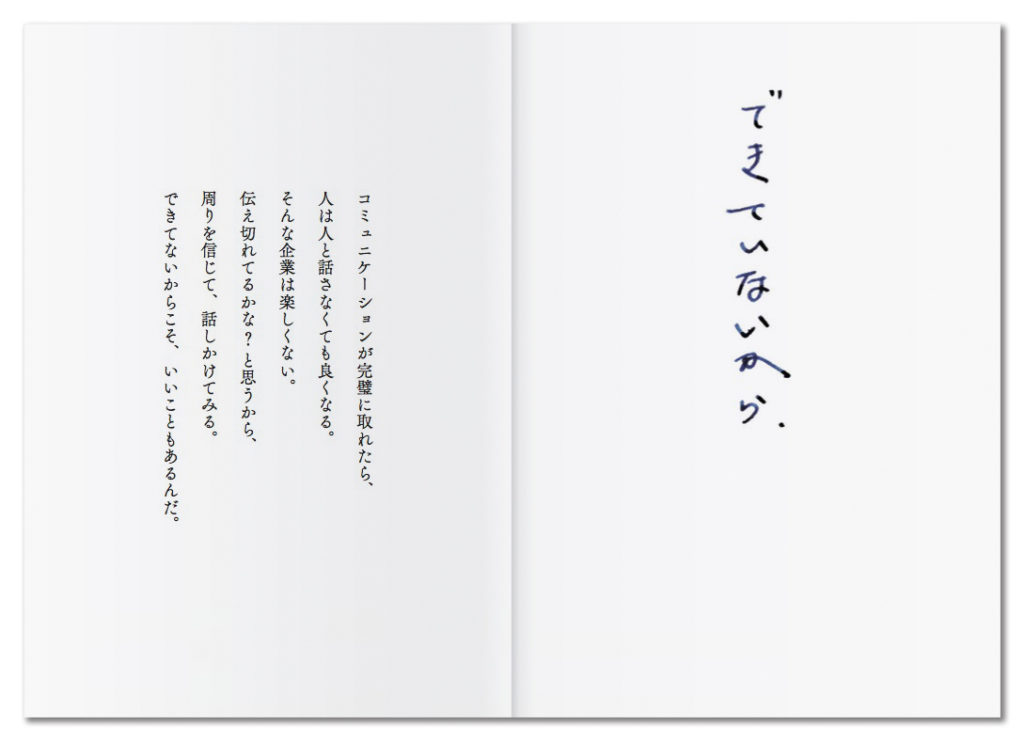 できていないから.
コミュニケーションが完璧に取れたら、
人は人と話さなくても良くなる。
そんな企業は楽しくない。
伝え切れてるかな？と思うから、
周りを信じて、話しかけてみる。
できてないからこそ、いいこともあるんだ。